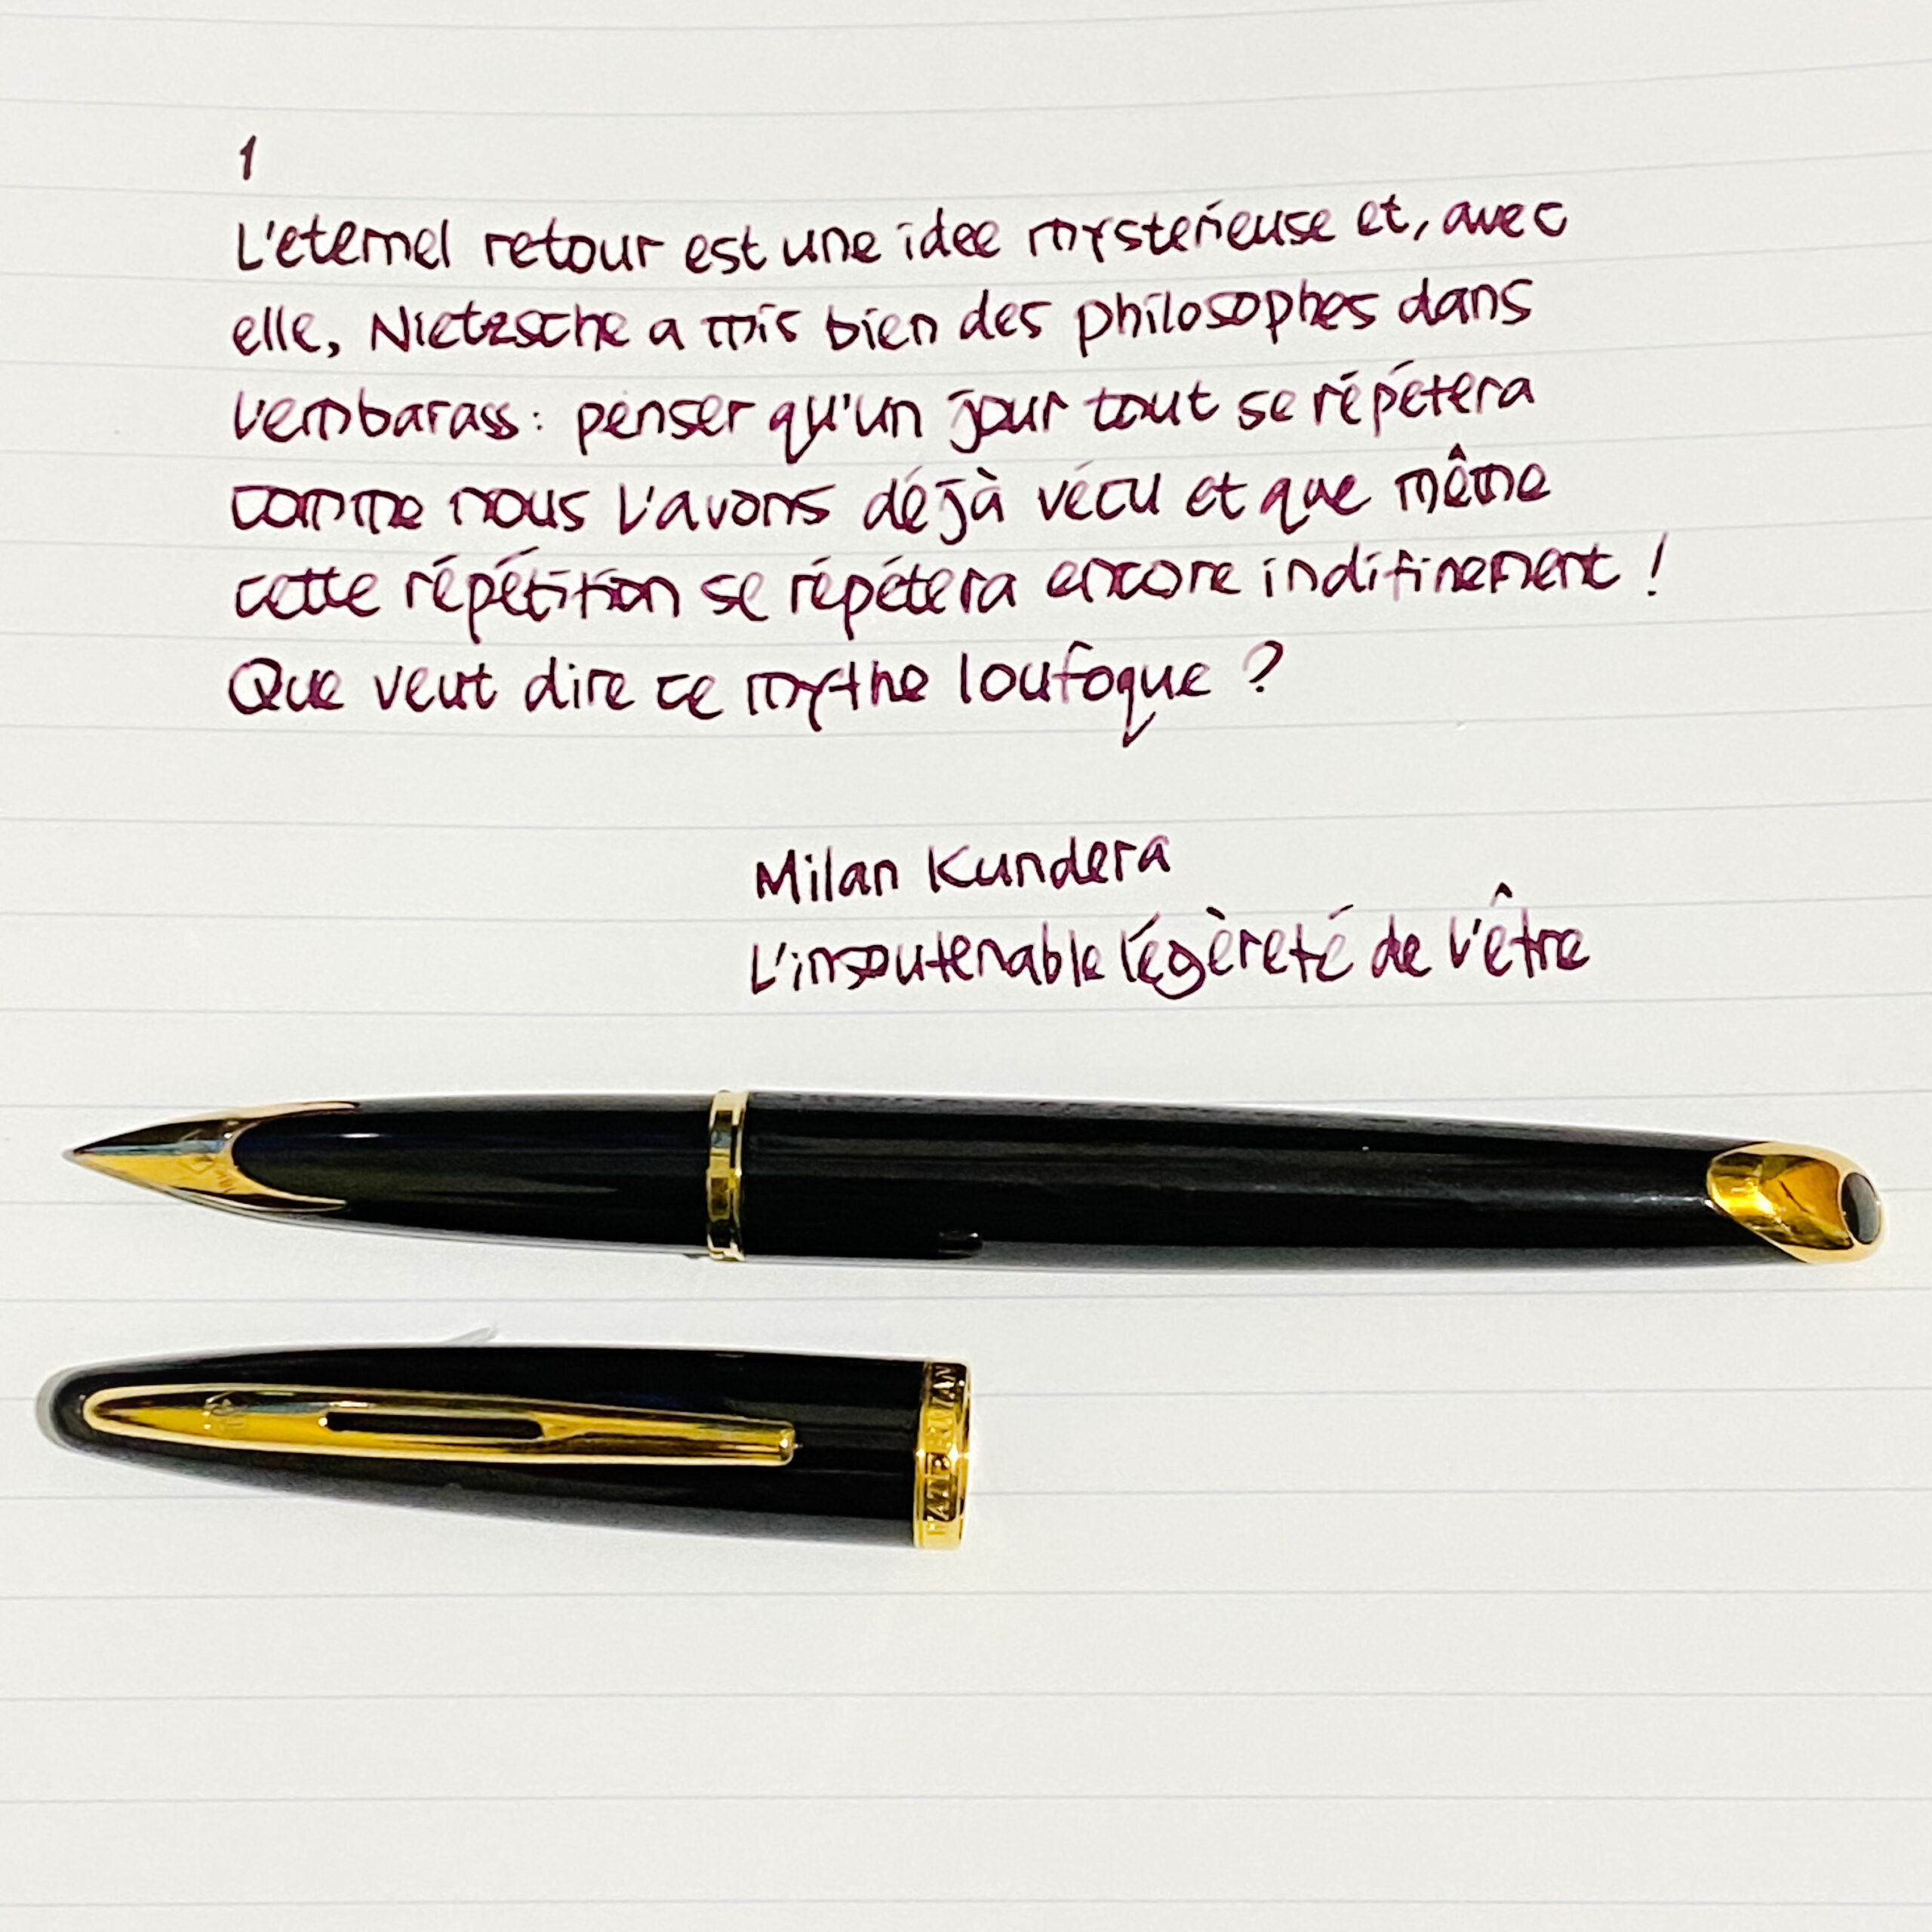 1
L'eternel retour est une idee mysterieuse et, avec
elle, Nietzsche a mis bien des philosophes dans
l'embarass : penser qu'un jour tout se répétera
comme nous l'avons déjà vécu et que même
cette répétition se répétera encore indifinement !
Que veut dire ce mythe loufoque ?
Milan Kundera
L'insoutenable légèreté de l'être
WATERMAN